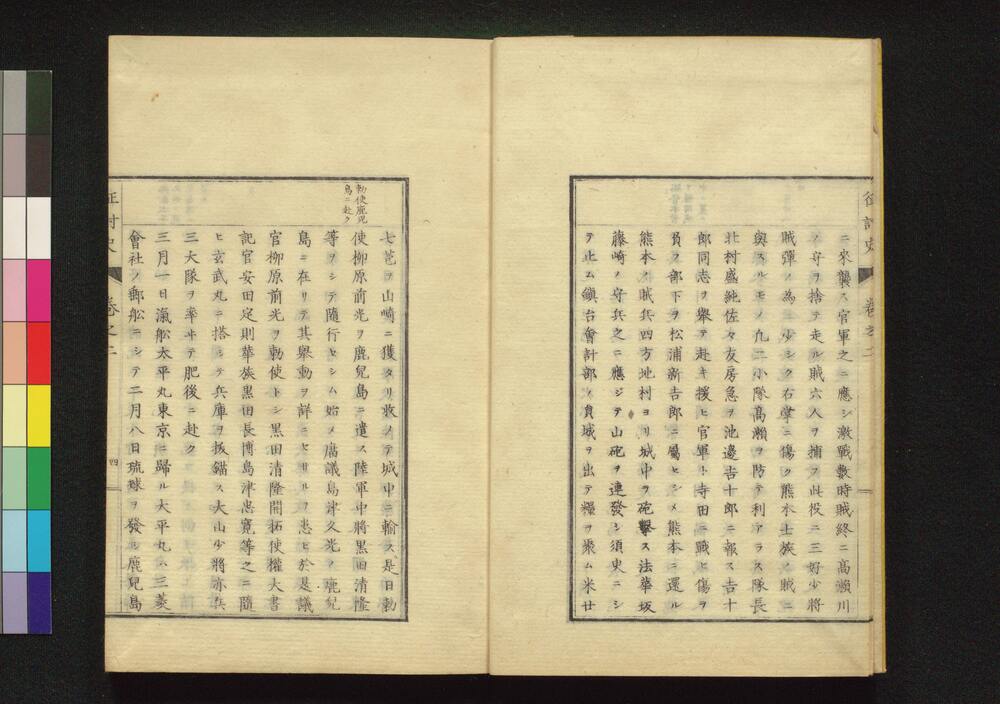 征討史 巻之二
ニ來襲ス官軍之ニ應シ激戰數時賊終ニ高瀨川
ノ守ヲ捨テ走ル賊六人ヲ捕フ此役ニ三好少將
賊彈ノ為ニ少シク右掌ニ傷ク熊本士族ノ賊ニ
與スルモノ凡二小隊高瀨ヲ防テ利アラス隊長
北村盛純佐々友房急ヲ池邊吉十郎ニ報ス吉十
郎同志ヲ擧テ赴キ援ヒ官軍ト寺田ニ戰ヒ傷ヲ
負フ部下ヲ松浦新吉郎ニ屬ヒシメ熊本ニ還ル
熊本ノ賊兵四方地村ヨリ城中ヲ砲擊ス法華坂
藤崎ノ守兵之ニ應ジテ山砲ヲ連發シ須臾ニシ
テ止ム鎭台會計部ノ員城ヲ出テ糧ヲ聚ム米廿
勅使鹿兒
島ニ赴ク
七苞ヲ山崎ニ獲タリ收メテ城中ニ輸ス是日勅
使柳原前光ヲ鹿兒島ニ遣ス陸軍中將黑田清隆
等ヲシテ隨行セシム始メ廣議島津久光ノ鹿兒
島ニ在リテ其擧動ヲ詳ニセサルヲ患ヒ於是議
官柳原前光ヲ勅使トシ黑田清隆開拓使權大書
記官安田定則華族黑田長博島津忠寛等之ニ隨
ヒ玄武丸ニ搭シテ兵庫ヲ拔錨ス大山少將亦兵
三大隊ヲ率ヰテ肥後ニ赴ク
三月一日滊舩太平丸東京ニ歸ル大平丸ハ三菱
會社ノ郵舩ニシテ二月八日琉球ヲ發シ鹿兒島
征討史 巻之二 四